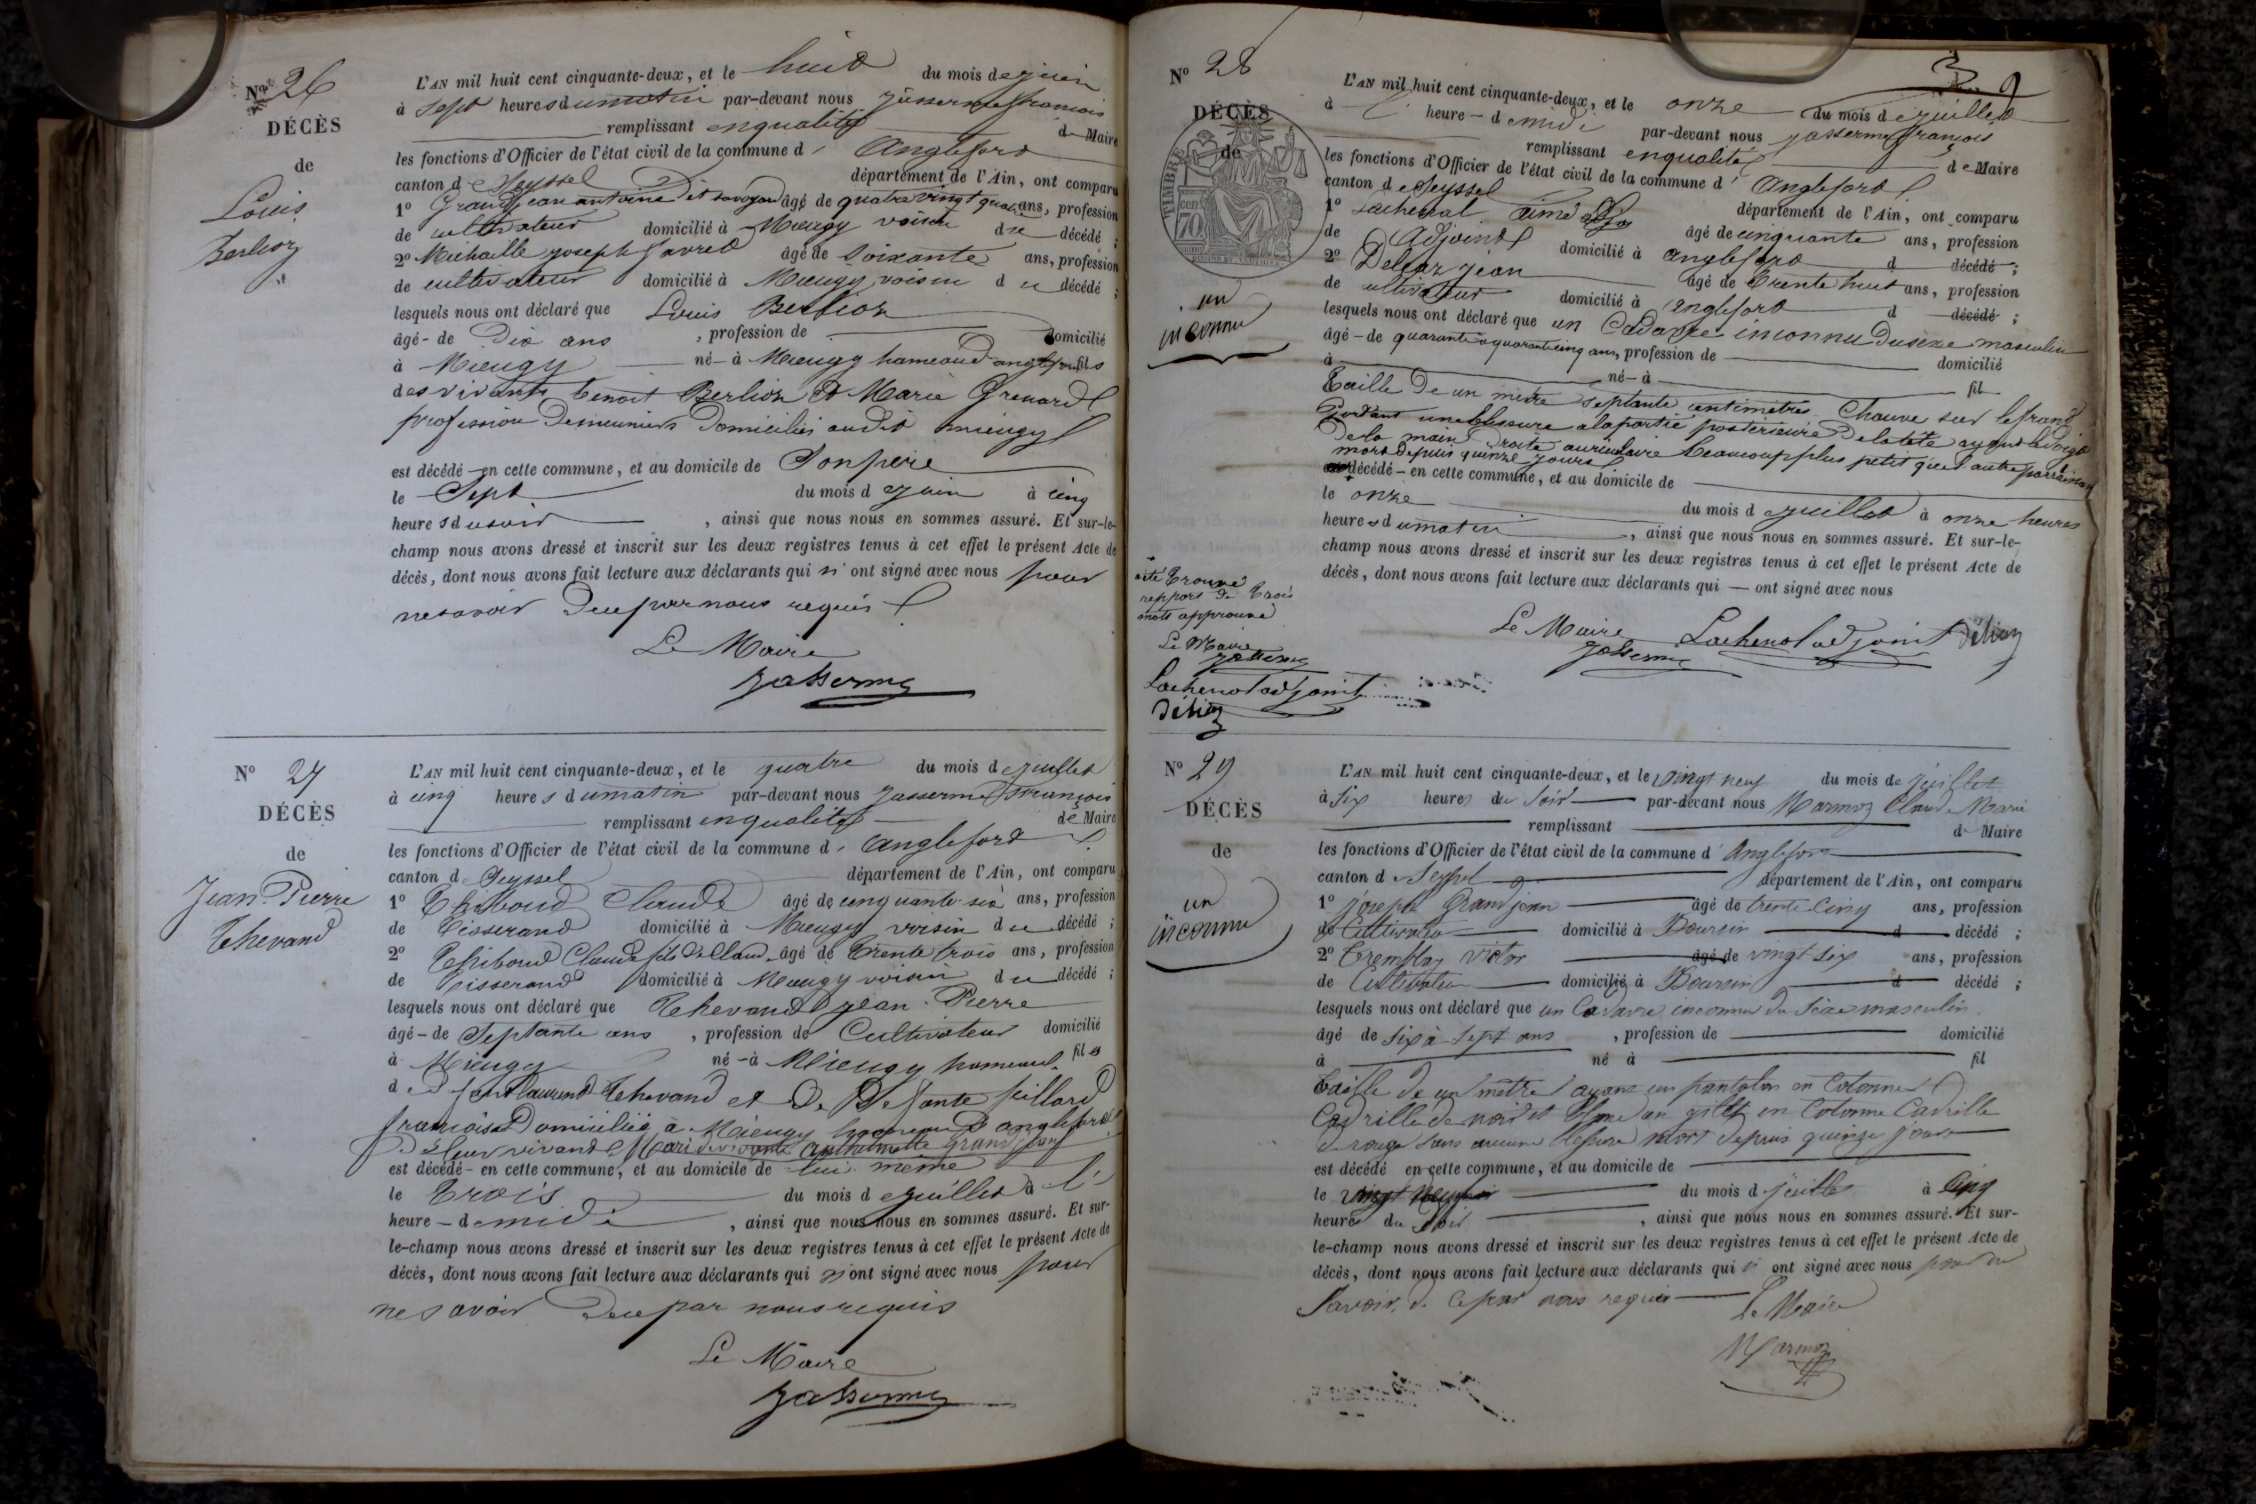 Nº 26
DÉCÈS
de
Louis
Berlioz
L'AN mil huit cent cinquante-deux, et le huit du mois de juin
à sept heures du matin par-devant nous Jasserme françois
remplissant en qualité de Maire
les fonctions d'Officier de l'état civil de la commune d' Anglefort
canton de Seyssel département de l'Ain, ont comparu
1º Grandjean antoine dit âgé de quatre vingt quatre ans, profession
de cultivateur domicilié à Mieugy voisin du décédé ;
2º Michaille joseph âgé de Soixante ans, profession
de cultivateur domicilié à Mieugy voisin du décédé ;
lesquels nous ont déclaré que Louis Berlioz
âgé de Dix ans , profession de domicilié
à Mieugy né à Mieugy hameau d'anglefort fils
des vivants benoit Berlioz et Marie Grenard
profession de meuniers Domiciliés audit mieugy
est décédé en cette commune, et au domicile de Son père
le Sept du mois de juin à cinq
heures du soir , ainsi que nous nous en sommes assuré. Et sur-le-
champ nous avons dressé et inscrit sur les deux registres tenus à cet effet le présent Acte de
décès, dont nous avons fait lecture aux déclarants qui n'ont signé avec nous pour
ne savoir de ce par nous requis
Le Maire
Jasserme
Nº 27
DÉCÈS
de
Jean-Pierre
Thevand
L'AN mil huit cent cinquante-deux, et le quatre du mois de juillet
à cinq heures du matin par-devant nous Jasserme françois
remplissant en qualité de Maire
les fonctions d'Officier de l'état civil de la commune d' anglefort
canton de Seyssel département de l'Ain, ont comparu
1º Thiboud Claude âgé de cinquante six ans, profession
de Tisserand domicilié à Mieugy voisin du décédé ;
2º Thiboud Claude fils de Claude âgé de Trente trois ans, profession
de Tisserand domicilié à Mieugy voisin du décédé ;
lesquels nous ont déclaré que Thevand jean Pierre
âgé de Septante ans , profession de Cultivateur domicilié
à Mieugy né à Mieugy hameau fils
de feu laurent Thevand et De Defante
françoise Domiciliés à Mieugy hameau d'anglefort
de leur vivant Mari de vivante anthelmette Grandjean
est décédé en cette commune, et au domicile de lui même
le Trois du mois de juillet à
heure de midi , ainsi que nous nous en sommes assuré. Et sur-
le-champ nous avons dressé et inscrit sur les deux registres tenus à cet effet le présent Acte de
décès, dont nous avons fait lecture aux déclarants qui n'ont signé avec nous pour
ne savoir de ce par nous requis
Le Maire
Jasserme
Nº 28
DÉCÈS
de
TIMBRE
70
un
inconnu
L'AN mil huit cent cinquante-deux, et le onze du mois de juillet
à heure de midi par-devant nous Jasserme françois
remplissant en qualité de Maire
les fonctions d'Officier de l'état civil de la commune d' Anglefort
canton de Seyssel département de l'Ain, ont comparu
1º Lachenal aimé âgé de cinquante ans, profession
de Adjoint domicilié à anglefort d décédé ;
2º Jean âgé de Trente huit ans, profession
de cultivateur domicilié à anglefort d décédé ;
lesquels nous ont déclaré que un Cadavre inconnu du sexe masculin
âgé de quarante a quarante cinq ans, profession de domicilié
à né à fil
Taille de un mètre septante centimètres Chauve sur le front
Portant une blessure a la partie postérieure De la tête ayant le doigt
De la main Droite auriculaire beaucoup plus petit que l'autre
mort depuis quinze jours
décédé en cette commune, et au domicile de
le onze du mois de juillet à onze heures
heures du matin , ainsi que nous nous en sommes assuré. Et sur-le-
champ nous avons dressé et inscrit sur les deux registres tenus à cet effet le présent Acte de
décès, dont nous avons fait lecture aux déclarants qui ont signé avec nous
Le Maire
Jasserme Lachenal adjoint
été trouvé
rapport de trois
mots approuvé
Le Maire
Jasserme
Lachenal adjoint
Nº 29
DÉCÈS
de
un
inconnu
L'AN mil huit cent cinquante-deux, et le vingt neuf du mois de juillet
à six heures du soir par-devant nous Marmoz Claude Marie
remplissant de Maire
les fonctions d'Officier de l'état civil de la commune d' Anglefort
canton de Seyssel département de l'Ain, ont comparu
1º joseph Grandjean âgé de trente cinq ans, profession
de Cultivateur domicilié à Boursin d décédé ;
2º Tremblay victor âgé de vingt-six ans, profession
de Cultivateur domicilié à Boursin d décédé ;
lesquels nous ont déclaré que un Cadavre inconnu du sexe masculin
âgé de six à sept ans , profession de domicilié
à né à fil
taille de un mètre ayant un pantalon en Cotonne
Cadrille de noir et un gillet en Cotonne Cadrille
de rouge sans aucune blessure mort depuis quinze jours
est décédé en cette commune, et au domicile de
le vingt neuf du mois de juillet à Cinq
heures du soir , ainsi que nous nous en sommes assuré. Et sur-
le-champ nous avons dressé et inscrit sur les deux registres tenus à cet effet le présent Acte de
décès, dont nous avons fait lecture aux déclarants qui n'ont signé avec nous pour ne
Savoir de ce par nous requis
Le Maire
Marmoz